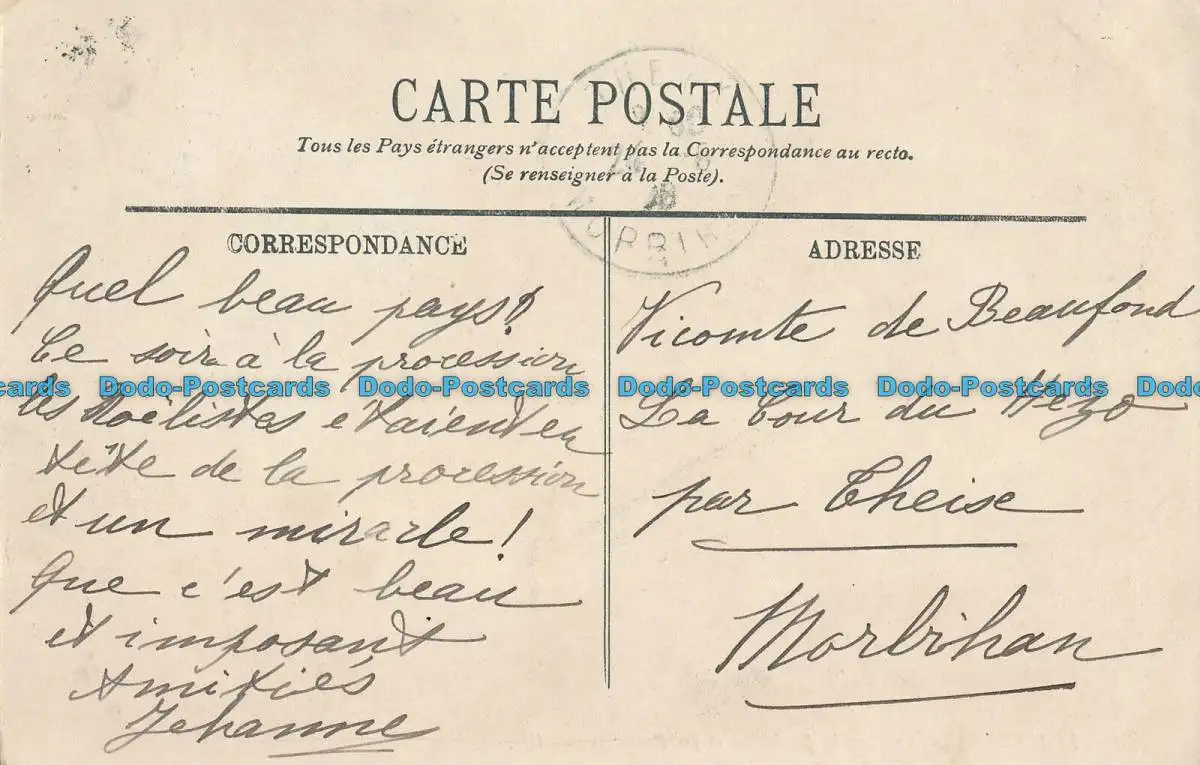 CARTE POSTALE
Tous les Pays étrangers n'acceptent pas la Correspondance au recto.
(Se renseigner à la Poste).
CORRESPONDANCE
Quel beau pays!
Ce soir à la procession
les Noëlistes étaient en
tête de la procession
et un miracle!
Que c'est beau
et imposant
Amitiés
Jehanne
ADRESSE
Vicomte de Beaufond
La Cour du Hézo
par Theise
Morbihan
MORBIH
Dodo-Postcards Dodo-Postcards Dodo-Postcards Dodo-Postcards